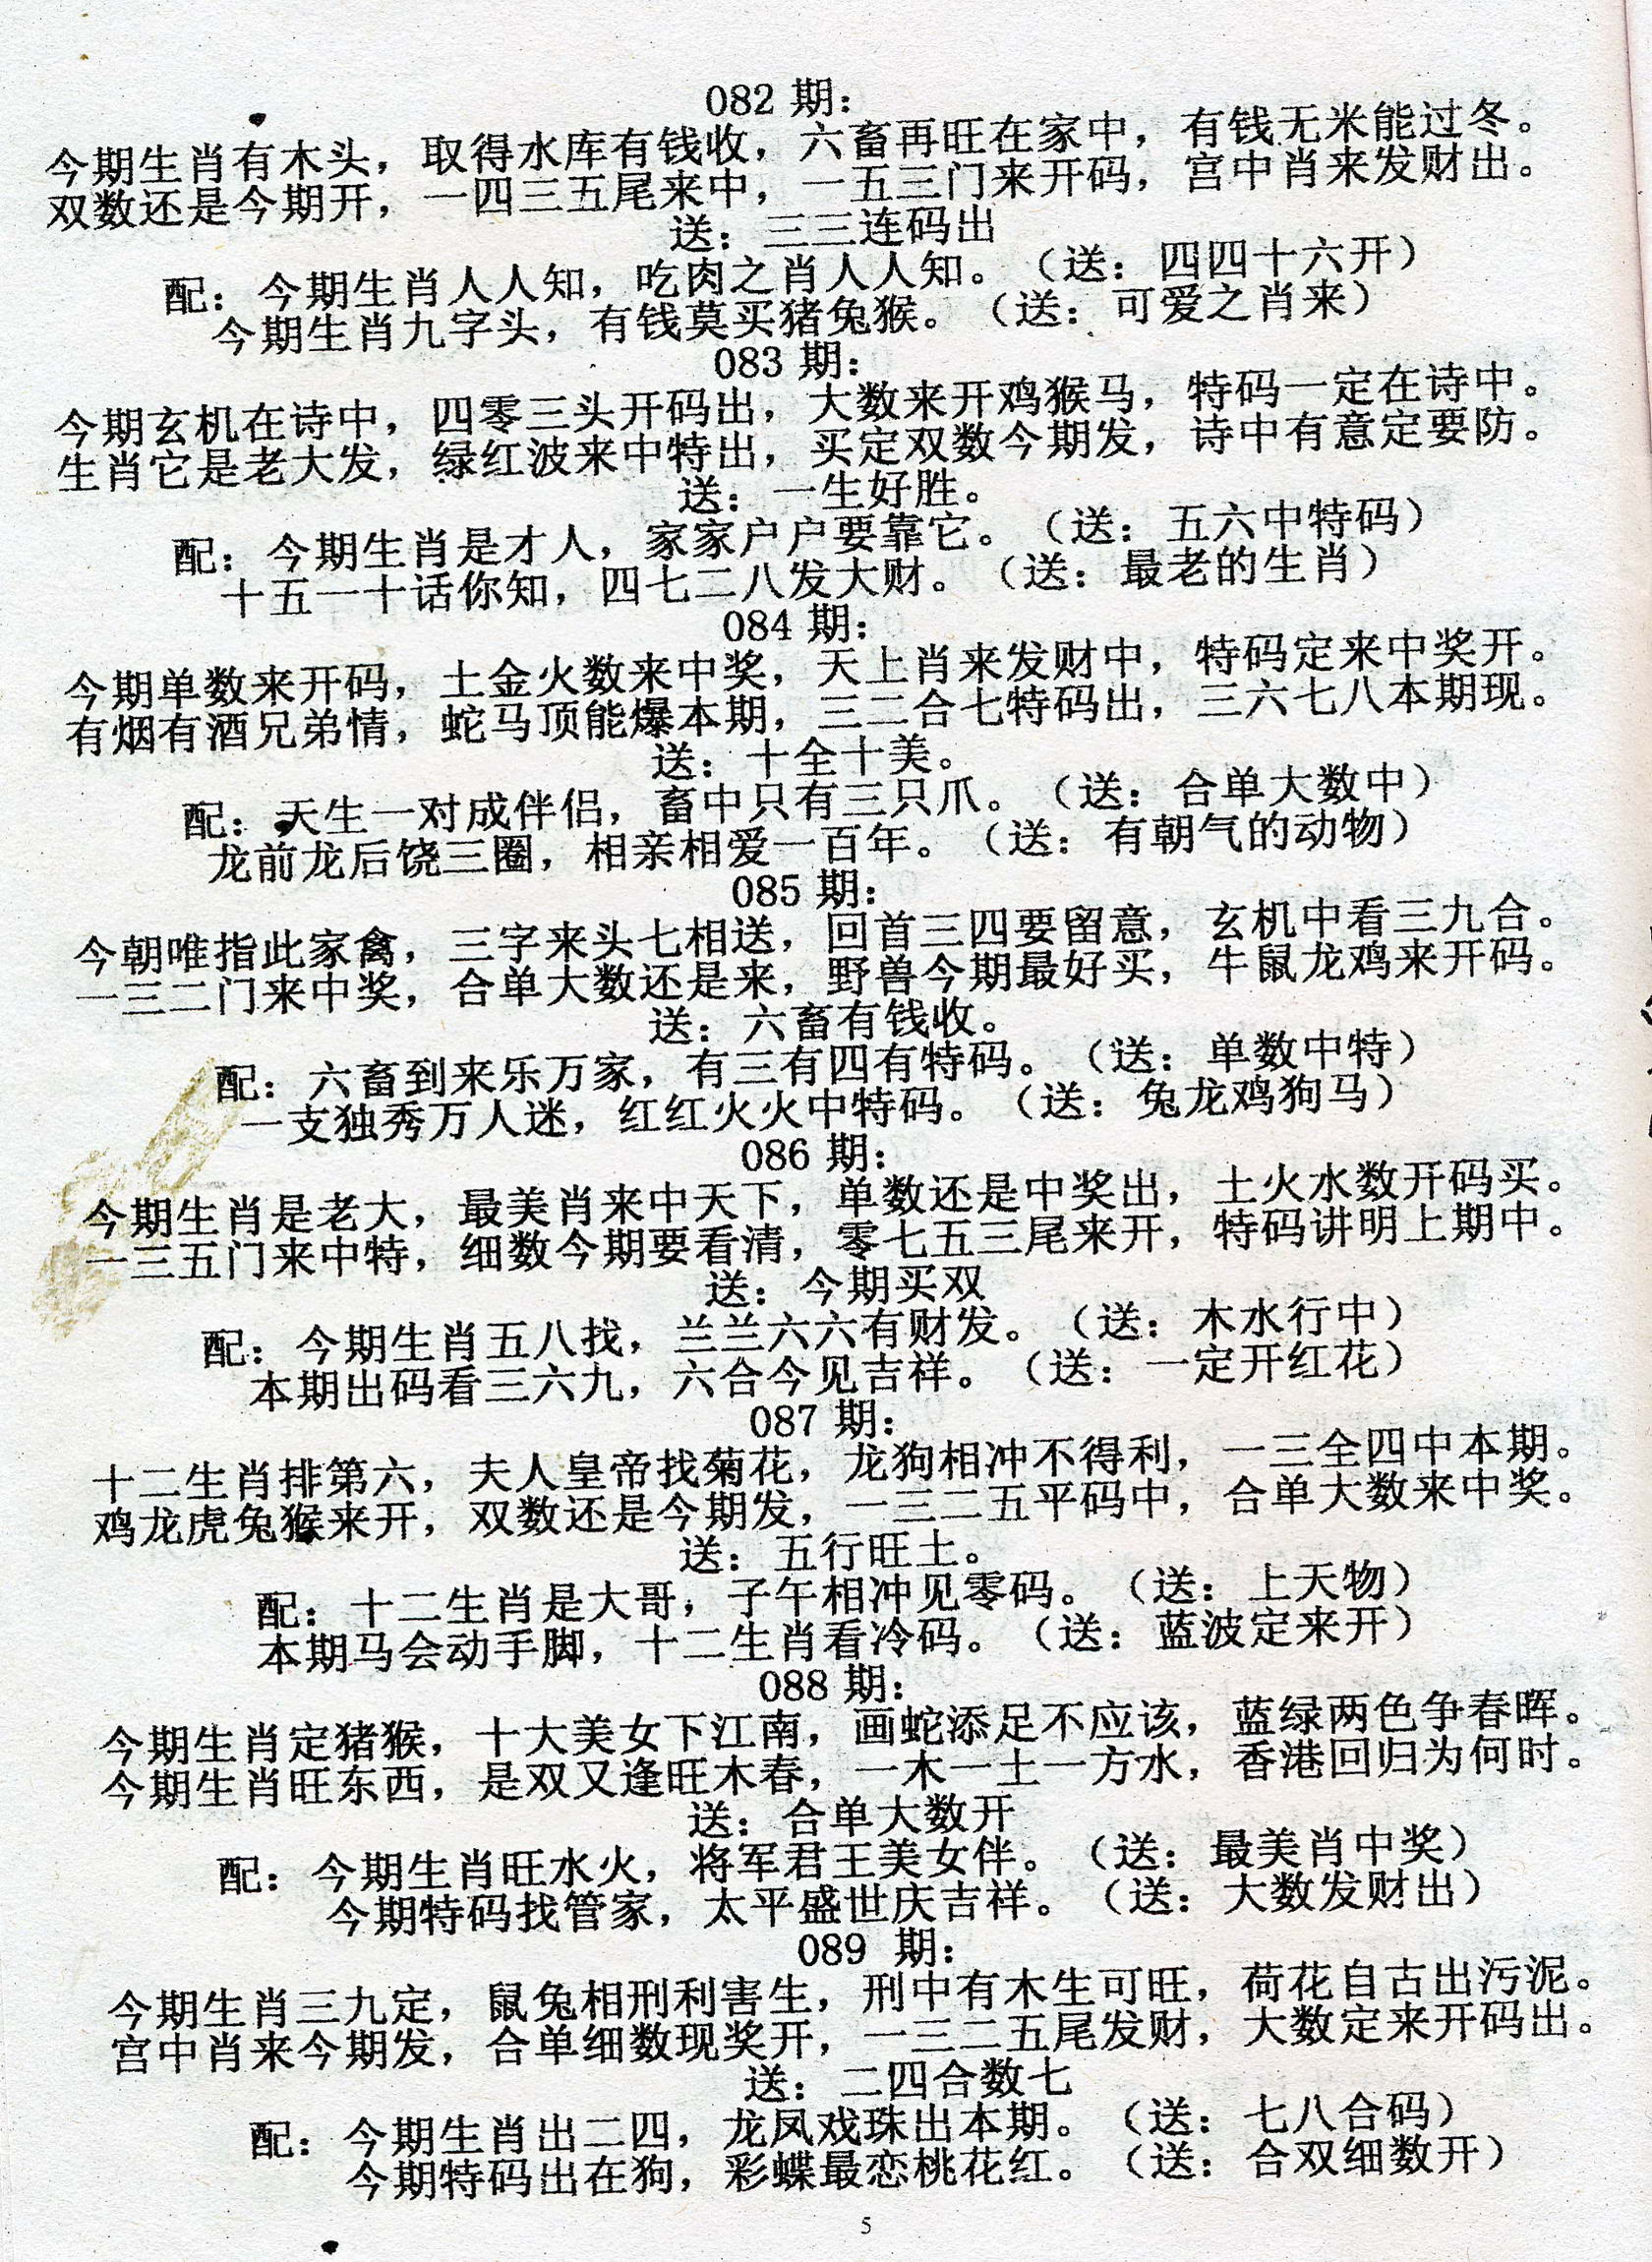 082 期：
今期生肖有木头，取得水库有钱收，六畜再旺在家中，有钱无米能过冬。
双数还是今期开，一四三五尾来中，一五三门来开码，宫中肖来发财出。
送：三三连码出
配：今期生肖人人知，吃肉之肖人人知。（送：四四十六开）
今期生肖九字头，有钱莫买猪兔猴。（送：可爱之肖来）
083 期：
今期玄机在诗中，四零三头开码出，大数来开鸡猴马，特码一定在诗中。
生肖它是老大发，绿红波来中特出，买定双数今期发，诗中有意定要防。
送：一生好胜。
配：今期生肖是才人，家家户户要靠它。（送：五六中特码）
十五一十话你知，四七二八发大财。（送：最老的生肖）
084 期：
今期单数来开码，土金火数来中奖，天上肖来发财中，特码定来中奖开。
有烟有酒兄弟情，蛇马顶能爆本期，三二合七特码出，三六七八本期现。
送：十全十美。
配：天生一对成伴侣，畜中只有三只爪。（送：合单大数中）
龙前龙后饶三圈，相亲相爱一百年。（送：有朝气的动物）
085 期：
今朝唯指此家禽，三字来头七相送，回首三四要留意，玄机中看三九合。
一三二门来中奖，合单大数还是来，野兽今期最好买，牛鼠龙鸡来开码。
送：六畜有钱收。
配：六畜到来乐万家，有三有四有特码。（送：单数中特）
一支独秀万人迷，红红火火中特码。（送：兔龙鸡狗马）
086 期：
今期生肖是老大，最美肖来中天下，单数还是中奖出，土火水数开码买。
一三五门来中特，细数今期要看清，零七五三尾来开，特码讲明上期中。
送：今期买双
配：今期生肖五八找，兰兰六六有财发。（送：木水行中）
本期出码看三六九，六合今见吉祥。（送：一定开红花）
087 期：
十二生肖排第六，夫人皇帝找菊花，龙狗相冲不得利，一三全四中本期。
鸡龙虎兔猴来开，双数还是今期发，一三二五平码中，合单大数来中奖。
送：五行旺土。
配：十二生肖是大哥，子午相冲见零码。（送：上天物）
本期马会动手脚，十二生肖看冷码。（送：蓝波定来开）
088 期：
今期生肖定猪猴，十大美女下江南，画蛇添足不应该，蓝绿两色争春晖。
今期生肖旺东西，是双又逢旺木春，一木一土一方水，香港回归为何时。
送：合单大数开
配：今期生肖旺水火，将军君王美女伴。（送：最美肖中奖）
今期特码找管家，太平盛世庆吉祥。（送：大数发财出）
089 期：
今期生肖三九定，鼠兔相刑利害生，刑中有木生可旺，荷花自古出污泥。
宫中肖来今期发，合单细数现奖开，一三二五尾发财，大数定来开码出。
送：二四合数七
配：今期生肖出二四，龙凤戏珠出本期。（送：七八合码）
今期特码出在狗，彩蝶最恋桃花红。（送：合双细数开）
5